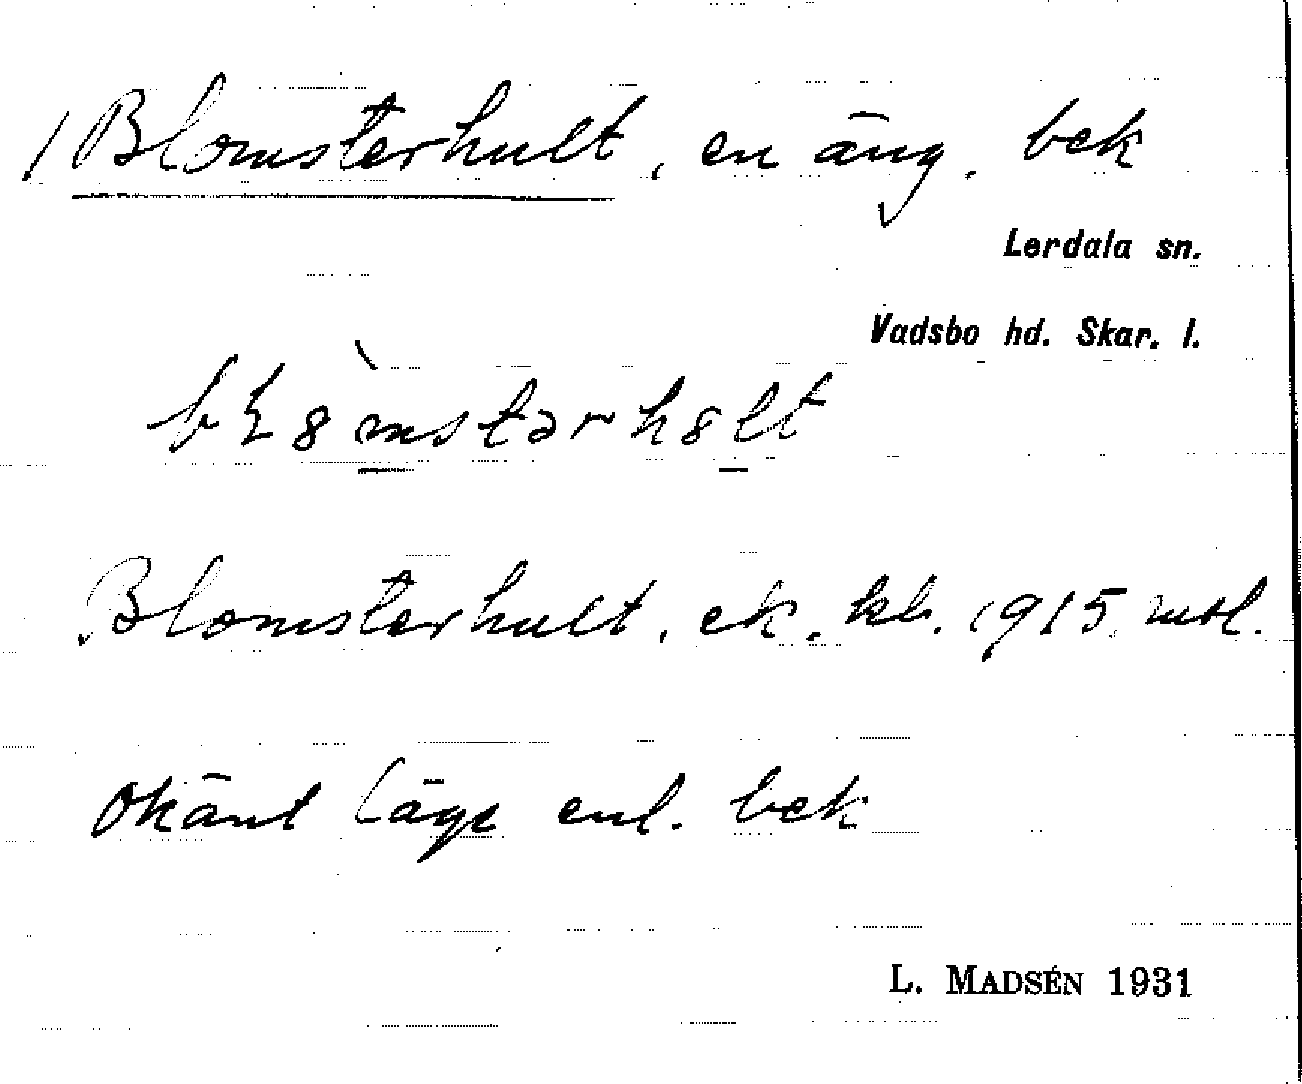 / Blomsterhult, en äng. bek
Lerdala sn.
Vadsbo hd. Skar. l.
Blomsterhult. ek. kb. 1915.
Okänt läge enl. bek
L. MADSÉN 1931